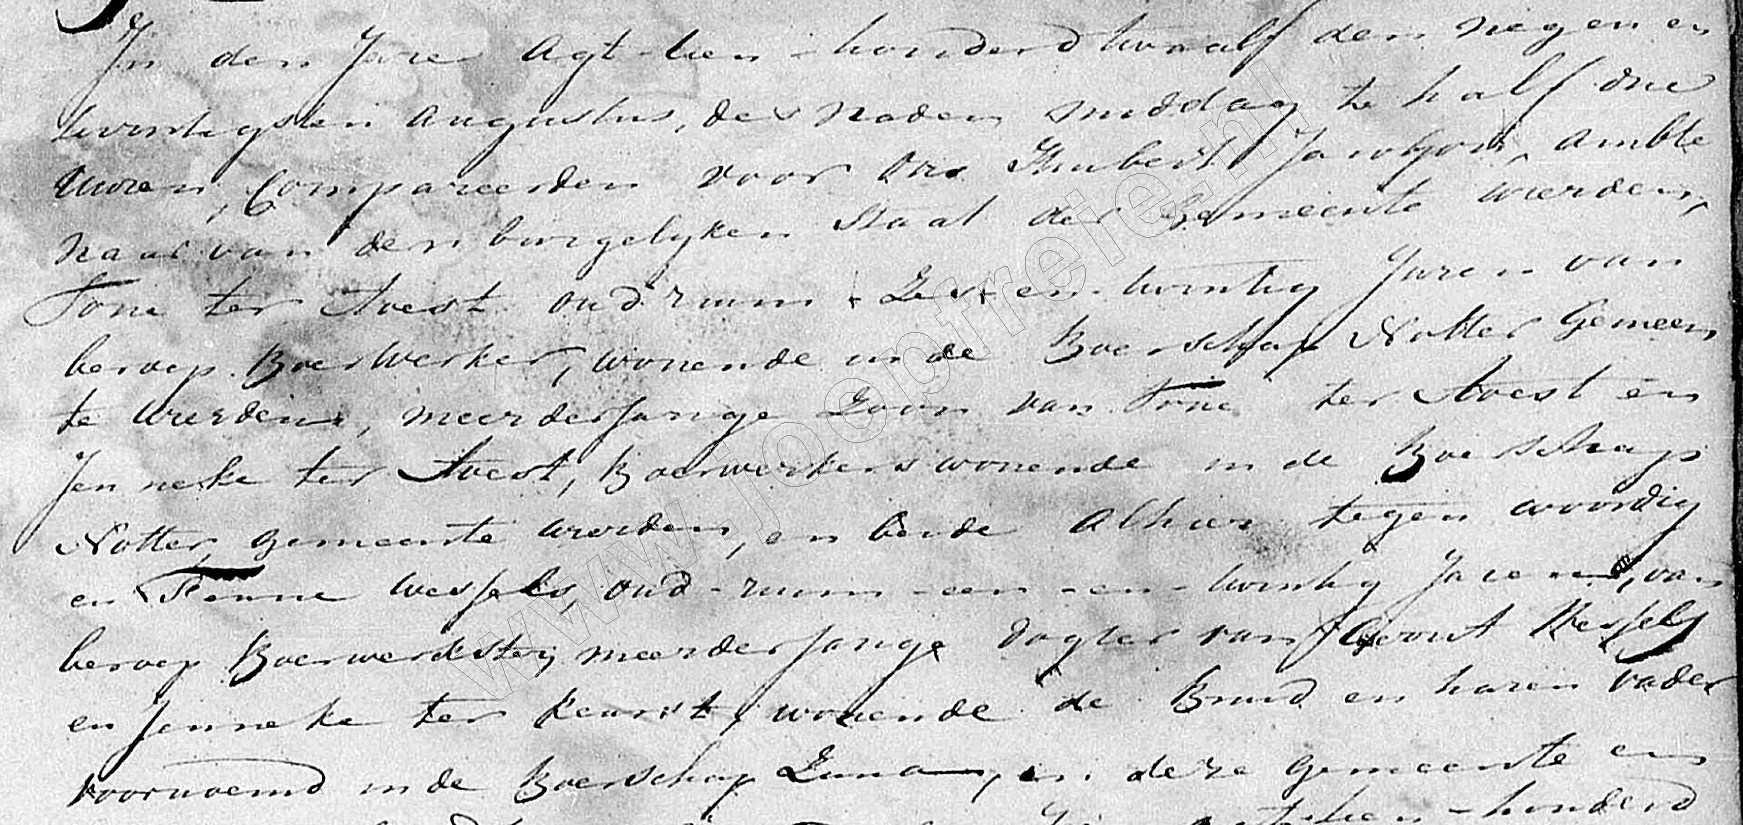 In den Jare Agt-tien-honderd twaalf den negen en
twintigsten Augustus, des nademiddag te half drie
uuren, Compareerden voor Ons Hubert Jacobson, ambte
naar van den burgelyken Staat der Gemeente Wierden,
Tone ter Avest oud ruim Zes-en-twintig Jaren van
beroep Boerwerker, wonende in de Boerschap Notter Gemeen
te Wierden, meerderjarige Zoon van Tone ter Avest en
Jenneke ter Avest, Boerwerkers wonende in de Boerschap
Notter, Gemeente Wierden, en beide Alhier tegenwoordig
en Fenne Wessels, oud-ruim-een-en-twintig Jaren, van
beroep Boerwerkster, meerderjarige Dogter van Gerrit Wessels
en Jenneke ter Keurst, wonende de Bruid en haren vader
voornoemd in de Boerschap Zuna, in deze Gemeente en
tien-honderd
www.joepfreie.nl